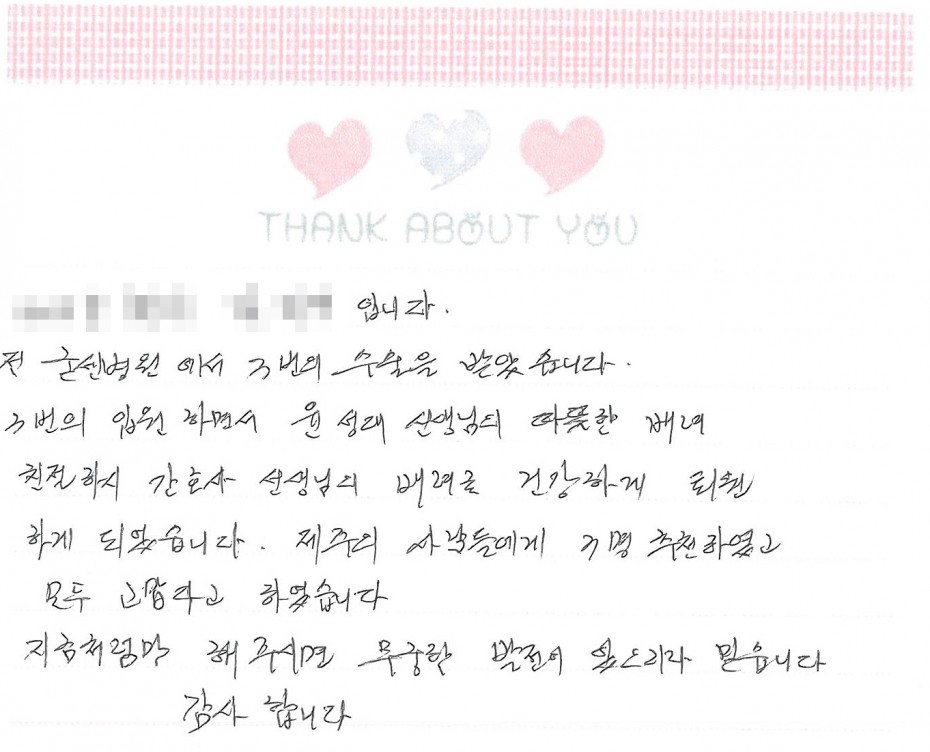 THANK ABOUT YOU
입니다.
전 굳센병원 에서 3번의 수술을 받았습니다.
3번의 입원 하면서 윤성대 선생님의 따뜻한 배려
친절하시 간호사 선생님의 배려로 건강하게 퇴원
하게 되었습니다. 제주의 사람들에게 3명 추천하였고
모두 고맙다고 하였습니다
지금처럼만 해 주시면 무궁한 발전이 있으리라 믿습니다
감사 합니다